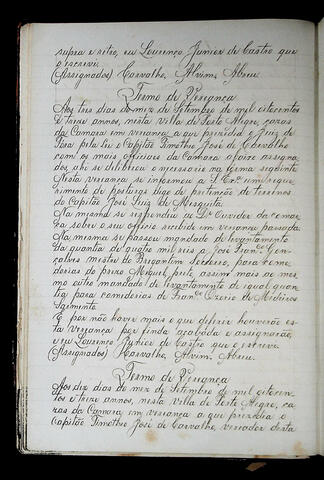 supra e retro, eu Lourenço Junior de Castro que
o escrevi.
(Assignados) Carvalho, Alvim, Abreu.
Termo de Vereança
Aos tres dias do mez de Setembro de mil oitocentos
e treze annos, nesta villa de Porto Alegre, cazas
da Camara em vereança a que prezidio o Juiz de
Fora pela Lei o Capitão Timotheo José de Carvalho
com os mais officiaes da Camara abaixo assigna-
dos, ahi se deliberou o necessario na forma seguinte
Nesta vereança se informou a S. Exª um reque-
rimento de posturas digo de pretenção de terrenos
do Capitão José Luiz de Mesquita.
Na mesma se respondeu ao Dr Ouvidor da comar-
ca sobre o seu officio recebido em vereança passada.
Na mesma se passou mandado de levantamento
da quantia de quatro mil reis a José Franco Gon-
çalves mestre do Bergantim para come-
dorias do prezo Miguel preto, assim mais ao mes-
mo outro mandado de levantamento de igual quan-
tia para comedorias de Franco Ozorio de Medeiros
E por não haver mais o que deferir houverão es-
ta vereança por finda acabada e assignarão,
e eu Lourenço Junior de Castro que o escrevi
(Assignados) Carvalho, Alvim, Abreu.
Termo de Vereança
Aos dez dias do mez de Setembro de mil oitocen-
tos e treze annos, nesta villa de Porto Alegre, ca-
zas da Camara em vereança a que prezidio o
Capitão Timotheo José de Carvalho, vereador desta